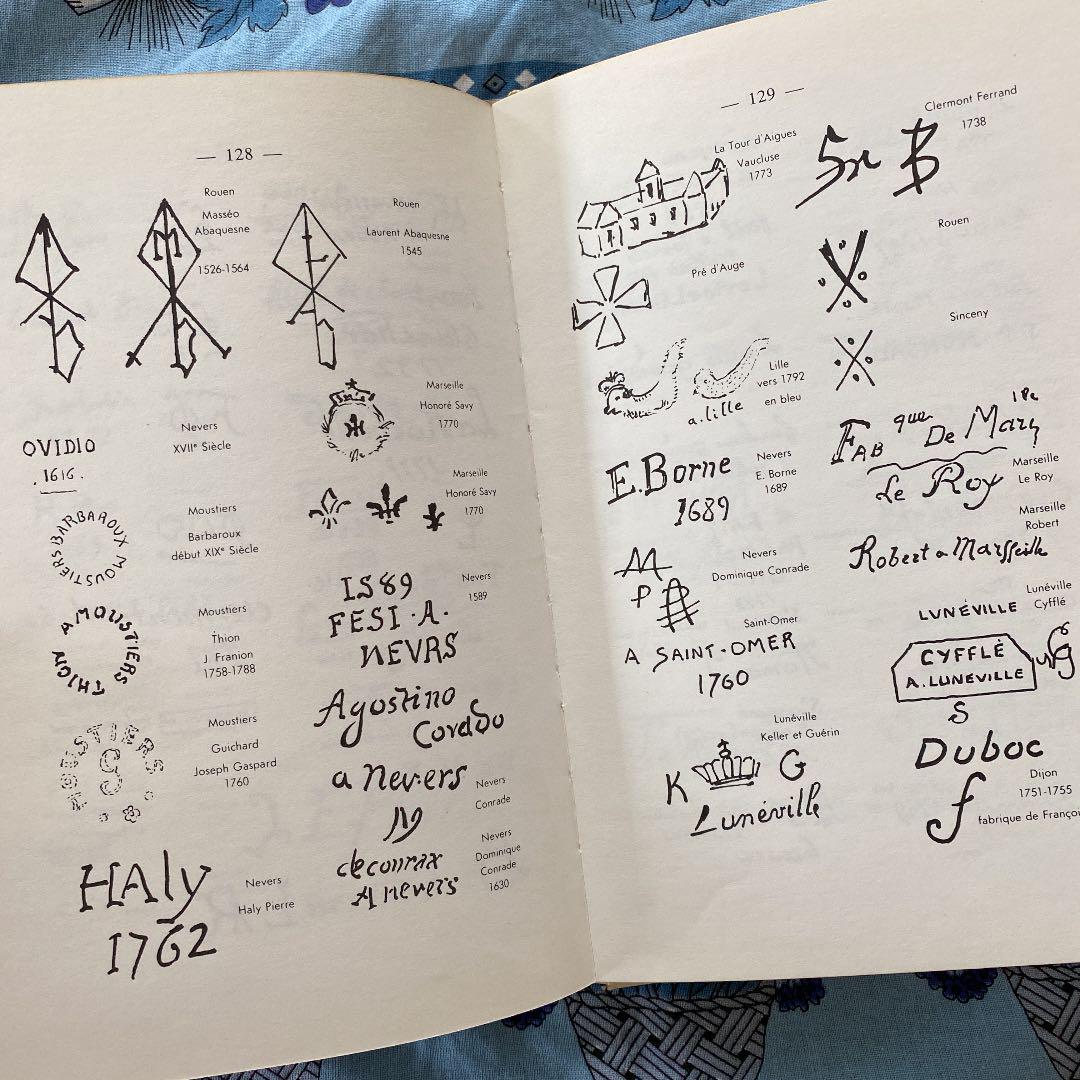 — 128 —
Rouen
Masséo
Abaquesne
1526-1564
M
Rouen
Laurent Abaquesne
1545
OVIDIO
. 1616 .
Nevers
XVIIe Siècle
Marseille
Honoré Savy
1770
BARBAROUX MOUSTIERS
Moustiers
Barbaroux
début XIXe Siècle
Marseille
Honoré Savy
1770
A MOUSTIERS
THION
Moustiers
Thion
J Franion
1758-1788
1589
FESI · A ·
NEVRS
Nevers
1589
G
Moustiers
Guichard
Joseph Gaspard
1760
Agostino
a Nevers
Nevers
Conrade
deconrax
A nevers
Nevers
Dominique
Conrade
1630
HAly
1762
Nevers
Haly Pierre
— 129 —
La Tour d'Aigues
Vaucluse
1773
Clermont Ferrand
1738
Pré d'Auge
Rouen
Sinceny
a. lille
Lille
vers 1792
en bleu
E. Borne
1689
Nevers
E. Borne
1689
FAB que De Mar
Le Roy
Marseille
Le Roy
M
P
Nevers
Dominique Conrade
Robert a Marsseille
Marseille
Robert
A SAINT-OMER
1760
Saint-Omer
LUNÉVILLE
CYFFLÉ
A. LUNEVILLE
S
Lunéville
Cyfflé
K G
Lunéville
Lunéville
Keller et Guérin
Duboc
f
Dijon
1751-1755
fabrique de